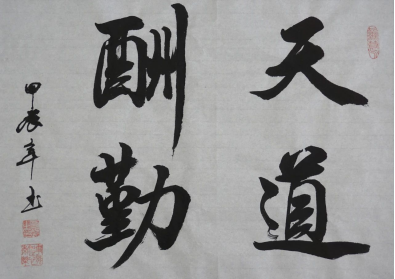 天道
酬勤
甲辰年书